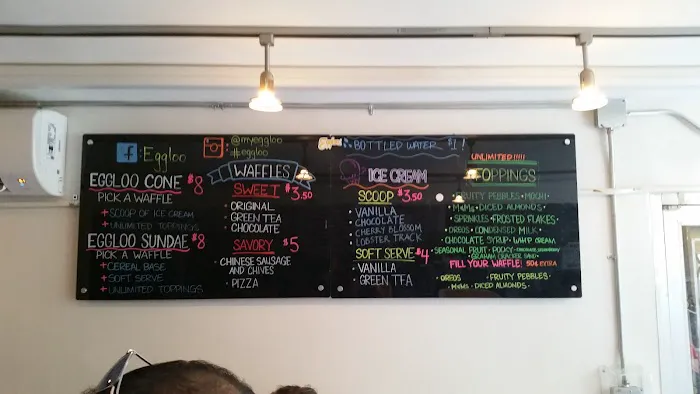 f : Eggloo
@myeggloo
#eggloo
EGGLOO CONE $8
PICK A WAFFLE
+ SCOOP OF ICE CREAM
+ UNLIMITED TOPPINGS
EGGLOO SUNDAE $8
PICK A WAFFLE
+ CEREAL BASE
+ SOFT SERVE
+ UNLIMITED TOPPINGS
WAFFLES
SWEET $3.50
· ORIGINAL
· GREEN TEA
· CHOCOLATE
SAVORY $5
· CHINESE SAUSAGE
AND CHIVES
· PIZZA
BOTTLED WATER $1!
ICE CREAM
SCOOP $3.50
· VANILLA
· CHOCOLATE
· CHERRY BLOSSOM
· LOBSTER TRACK
SOFT SERVE $4
· VANILLA
· GREEN TEA
UNLIMITED!!!!!
TOPPINGS
FRUITY PEBBLES · MOCHI ·
· M&Ms · DICED ALMONDS ·
· SPRINKLES · FROSTED FLAKES ·
· OREOS · CONDENSED MILK ·
· CHOCOLATE SYRUP · WHIP CREAM
· SEASONAL FRUIT · POCKY -
· GRAHAM CRACKER SAND ·
FILL YOUR WAFFLE! 50¢ EXTRA
· OREOS · FRUITY PEBBLES ·
· M&Ms · DICED ALMONDS ·